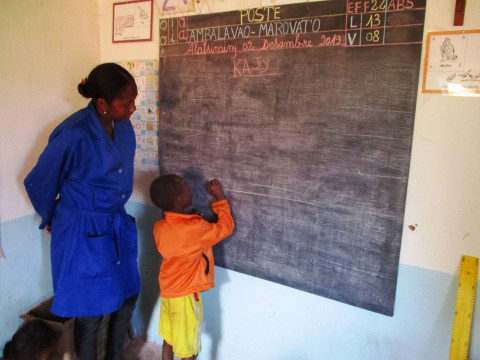 POSTE
AMBALAVAO-MAROVATO
Alatsinainy 02 Desambra 2019
KAJY
EFF 24 ABS
L 13
V 08